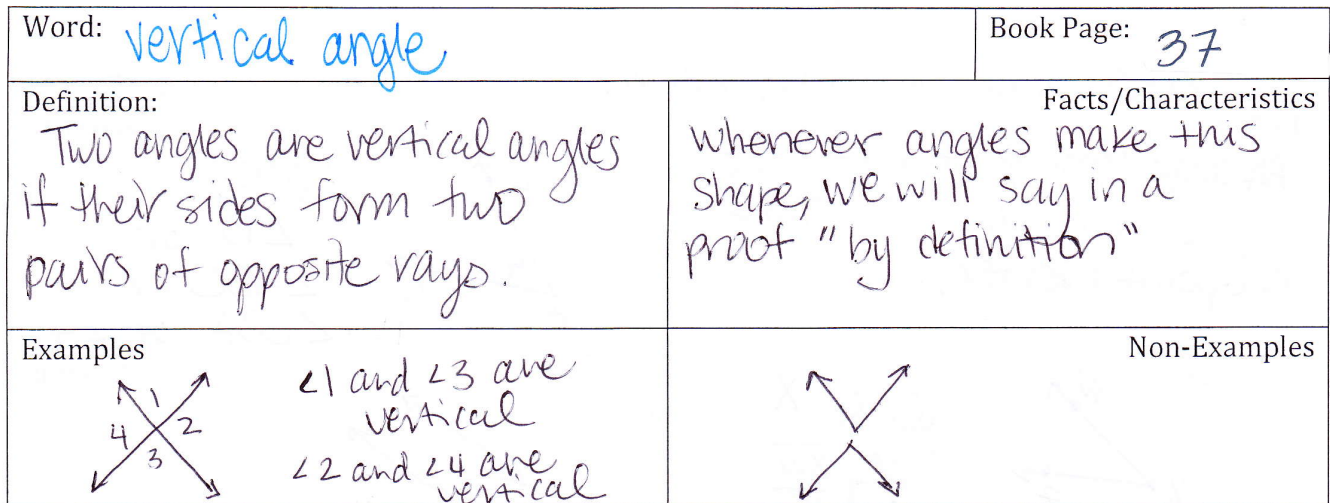 Word: vertical angle
Book Page: 37
Definition:
Two angles are vertical angles
if their sides form two
pairs of opposite rays.
Facts/Characteristics
whenever angles make this
shape, we will say in a
proof "by definition"
Examples
1
4 2
3
∠1 and ∠3 are
vertical
∠2 and ∠4 are
vertical
Non-Examples